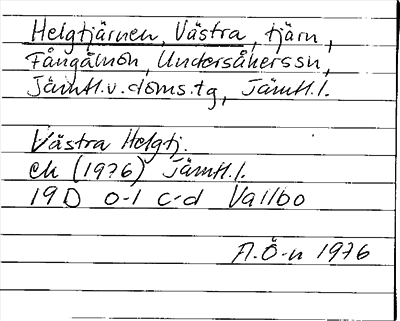 Helgtjärnen, Västra, tjärn,
Fångåmon, Undersåkerssn,
Jämtl.v.doms.tg, Jämtl.l.
Västra Helgtj.
ek (1976) Jämtl.l.
19D 0-1 c-d Vallbo
A.Ö-n 1976